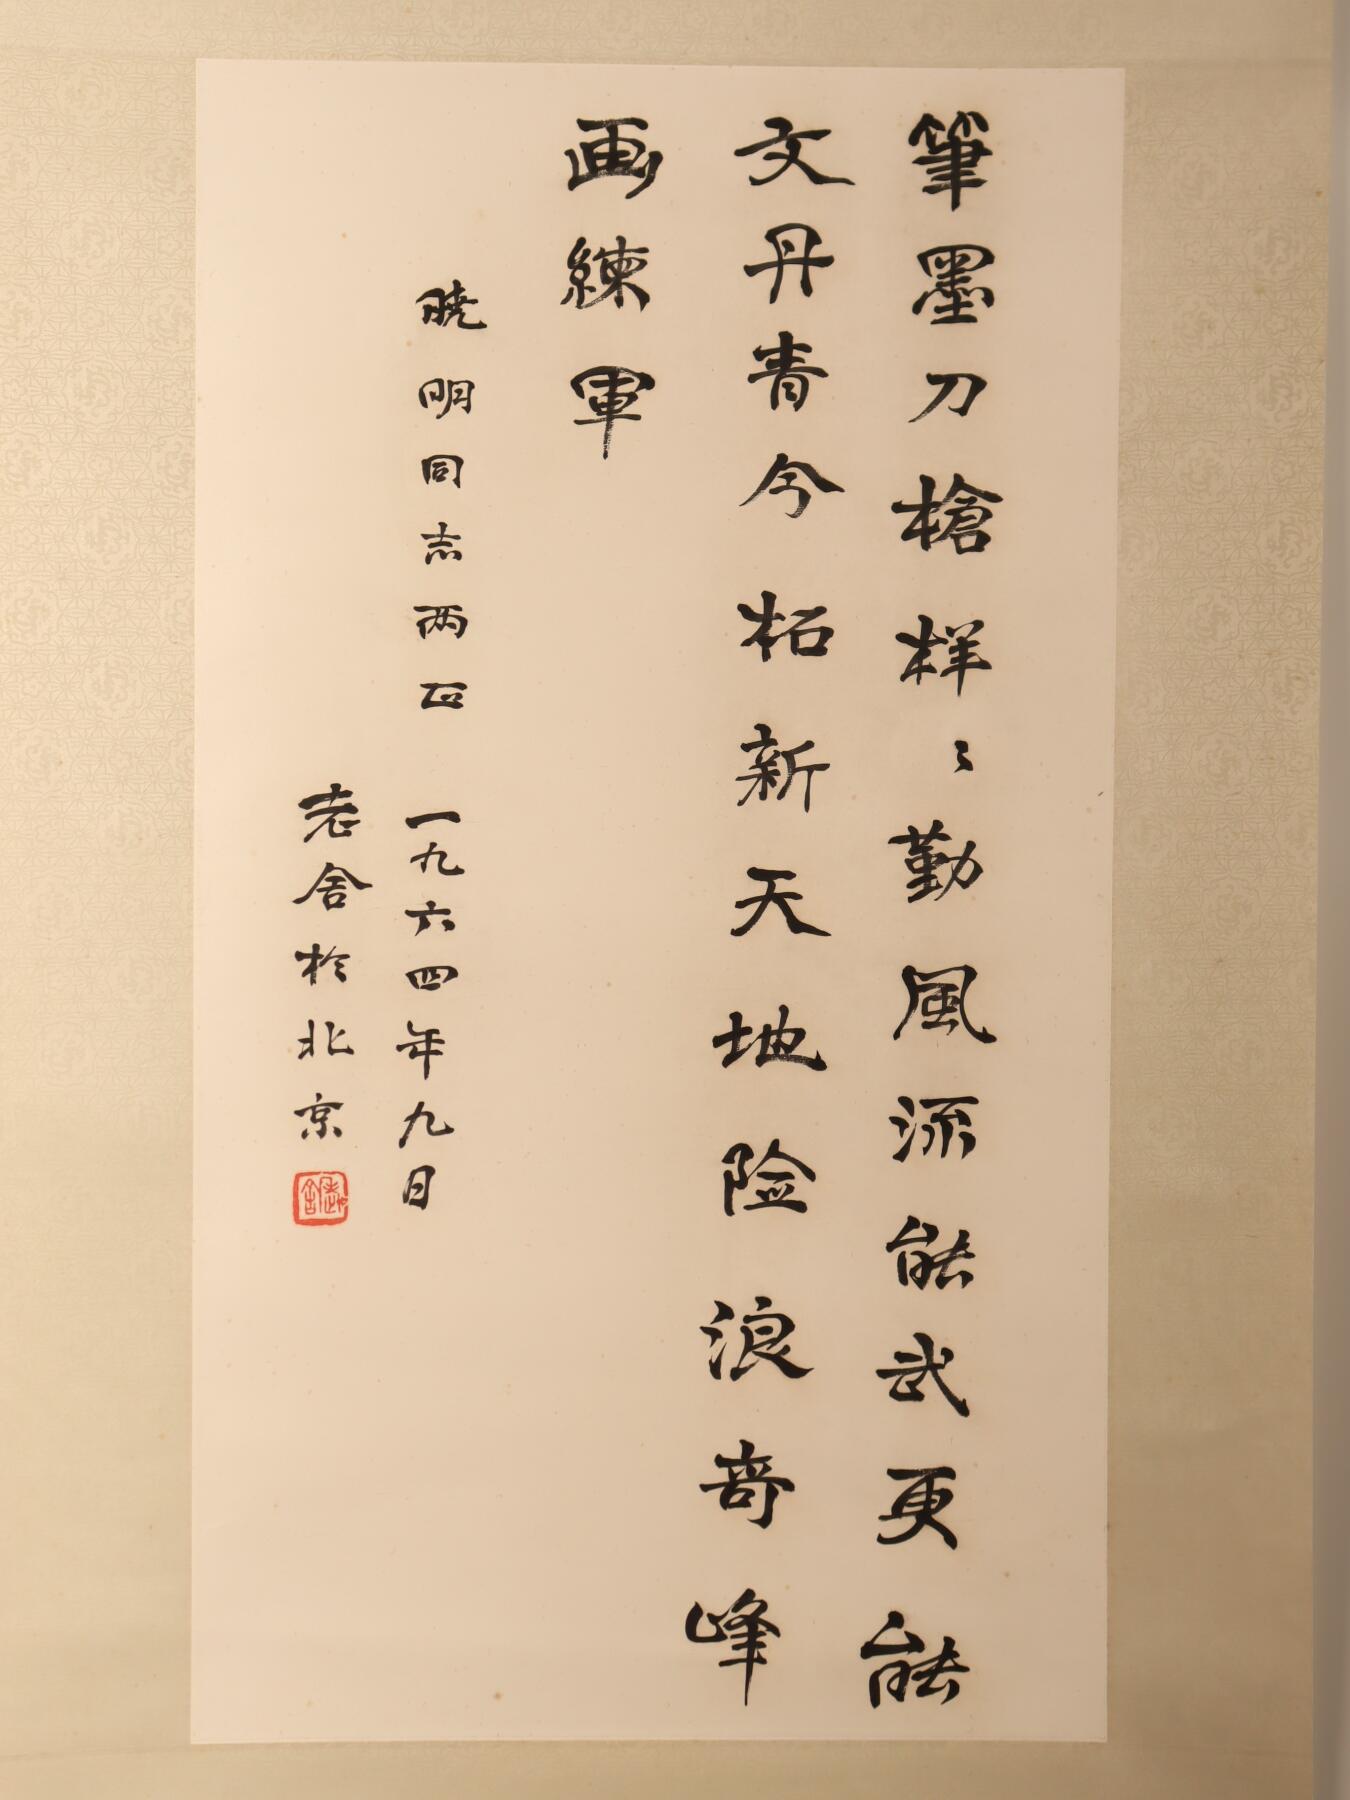 筆墨刀槍样〻勤風流能武更能
文丹青今柘新天地险浪奇峰
画練軍
晓明同志两正 一九六四年九日
老舍於北京
老舍